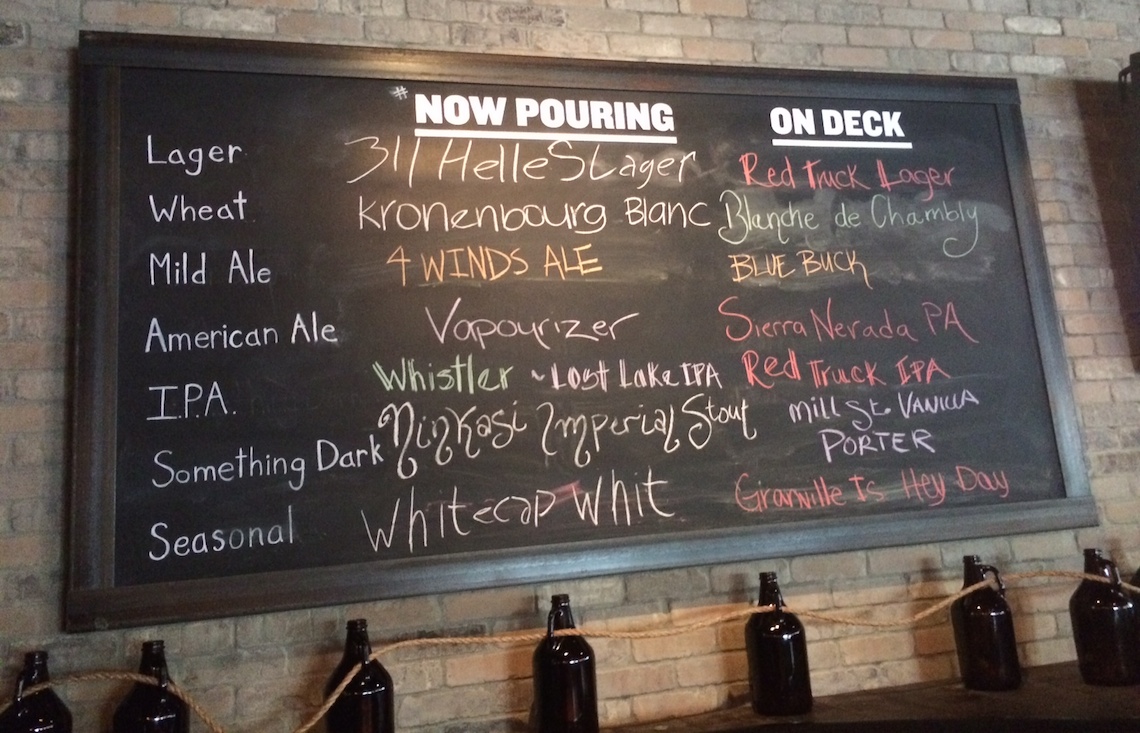 # NOW POURING ON DECK
Lager 311 Helles Lager Red Truck Lager
Wheat Kronenbourg Blanc Blanche de Chambly
Mild Ale 4 WINDS ALE BLUE BUCK
American Ale Vapourizer Sierra Nevada PA
I.P.A. Whistler ~ Lost Lake IPA Red Truck IPA
Something Dark Ninkasi Imperial Stout Mill St. VANILLA
PORTER
Seasonal Whitecap Whit Granville Is Hey Day